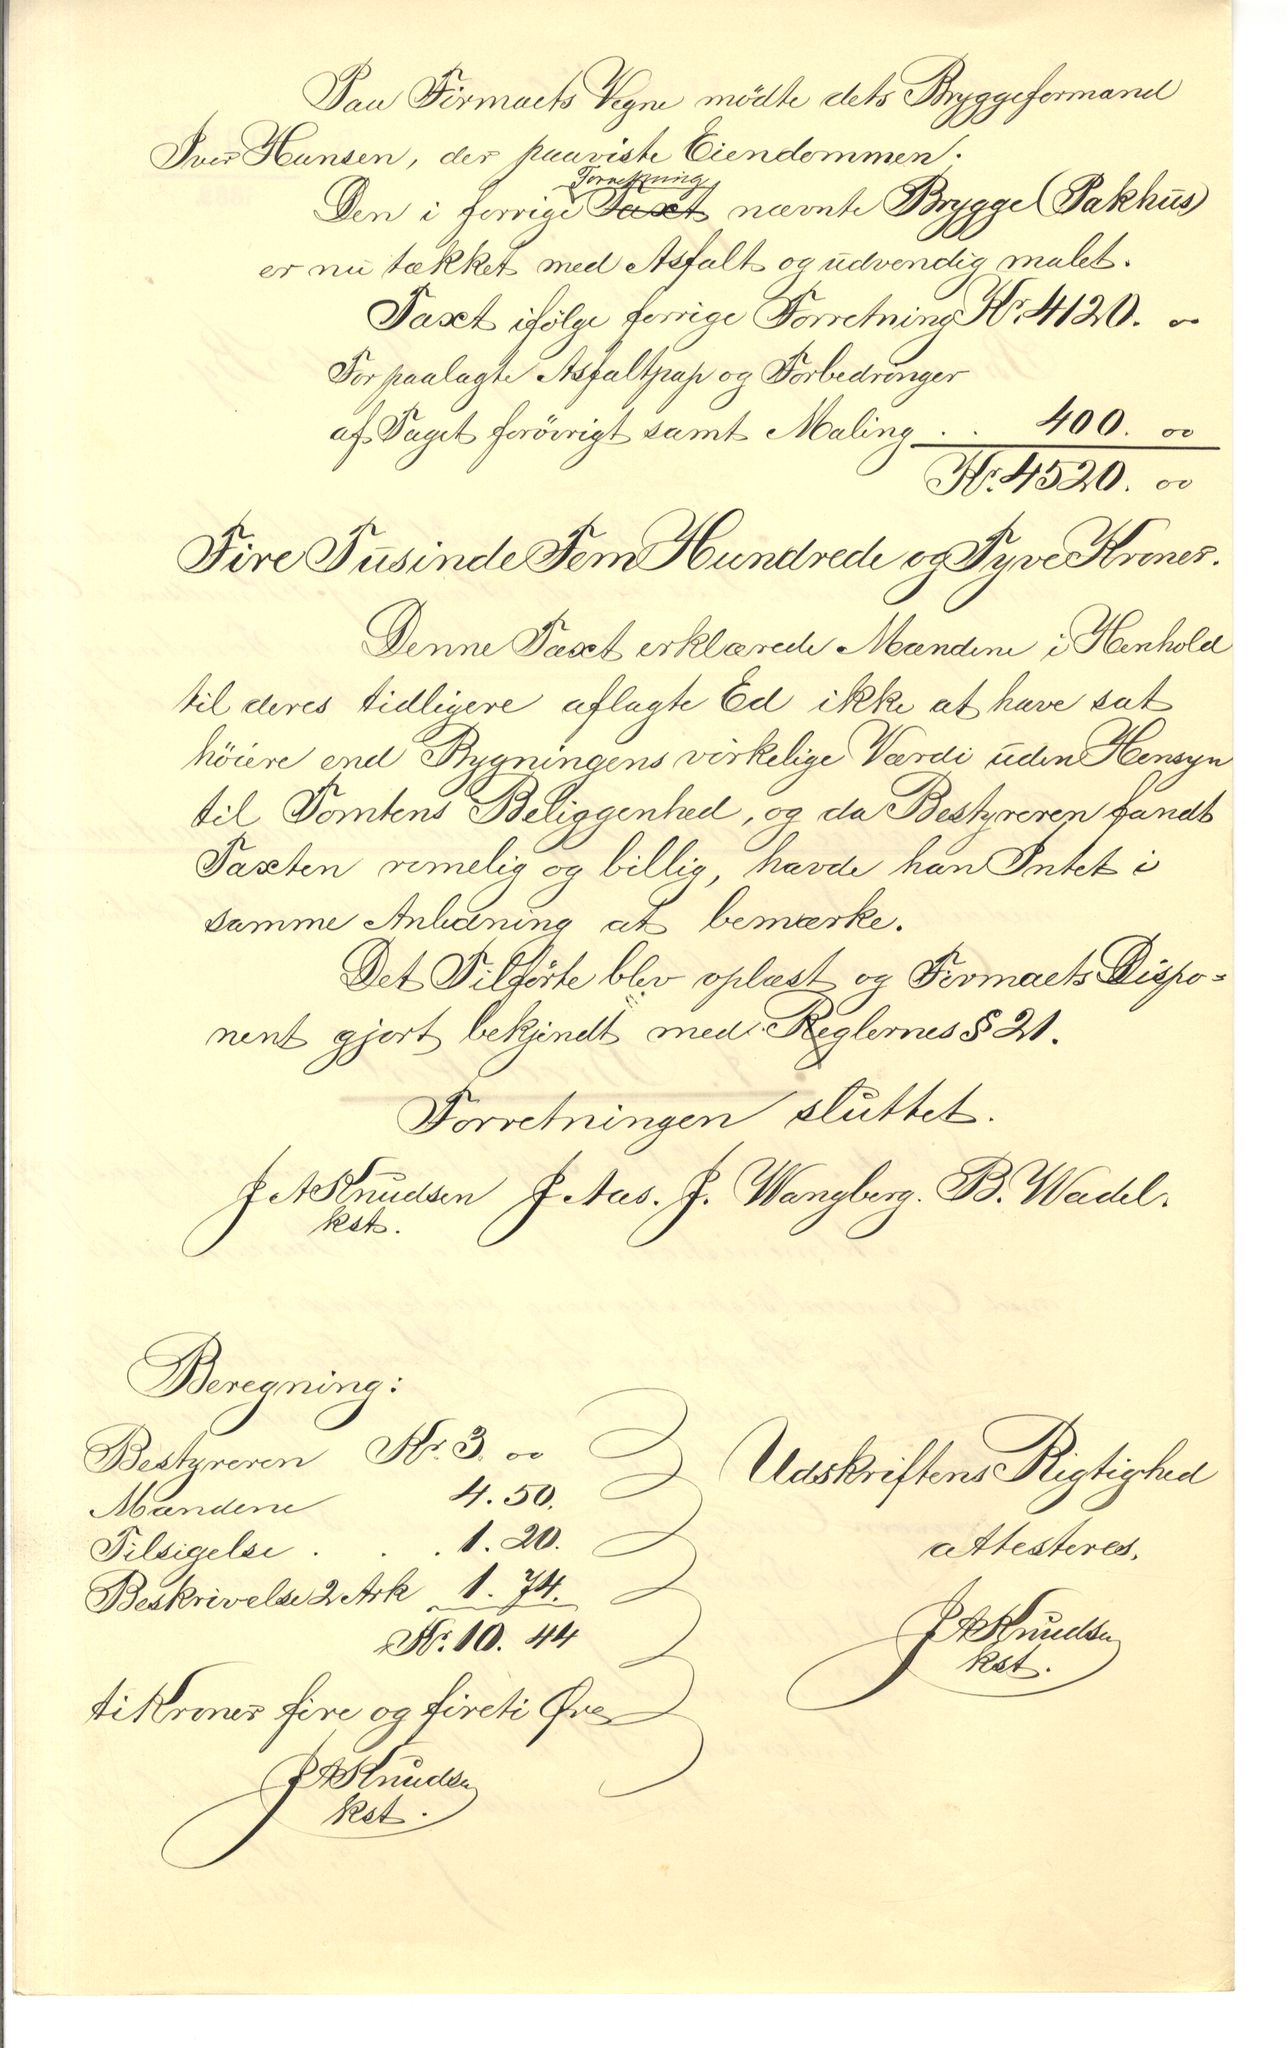 Paa Firmaets Vegne mödte dets Bryggeformand
Iver Hansen, der paaviste Eiendommen.
Forretning
Den i forrige Taxt nævnte Brygge (Pakhus)
er nu tækket med Asfalt og udvendig malet.
Taxt ifölge forrige Forretning Kr. 4120. 00
For paalagte Asfaltpap og Forbedringer
af Taget forövrigt samt Maling . . 400. 00
Kr. 4520. 00
Fire Tusinde Fem Hundrede og Tyve Kroner.
Denne Taxt erklærede Mændene i Henhold
til deres tidligere aflagte Ed ikke at have sat
höiere end Bygningens virkelige Værdi uden Hensyn
til Tomtens Beliggenhed, og da Bestyreren fandt
Taxten rimelig og billig, havde han Intet i
samme Anledning at bemærke.
Det Tilförte blev oplæst og Firmaets Dispo=
nent gjort bekjendt med Reglernes § 21.
Forretningen sluttet.
J A Knudsen J Aas. J. Wangberg. B. Wadel.
kst.
Beregning:
Bestyreren Kr. 3. 00
Mændene 4. 50.
Tilsigelse . . . 1. 20.
Beskrivelse 2 Ark 1. 74.
Kr. 10. 44
ti Kroner fire og fireti Øre
J A Knudsen
kst.
Udskriftens Rigtighed
attesteres.
J A Knudsen
kst.